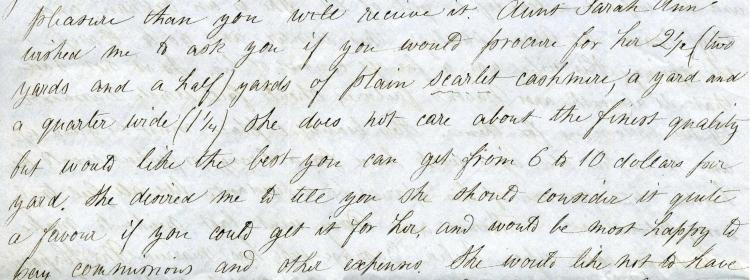 pleasure than you will recieve it. Aunt Sarah Ann
wished me to ask you if you would procure for her 2 1/2 (two
yards and a half) yards of plain scarlet cashmire, a yard and
a quarter wide (1 1/4) She does not care about the finest quality
but would like the best you can get from 6 to 10 dollars per
yard. She desired me to tell you she should consider it quite
a favour if you could get it for her, and would be most happy to
pay commissions and other expenses. She would like not to have